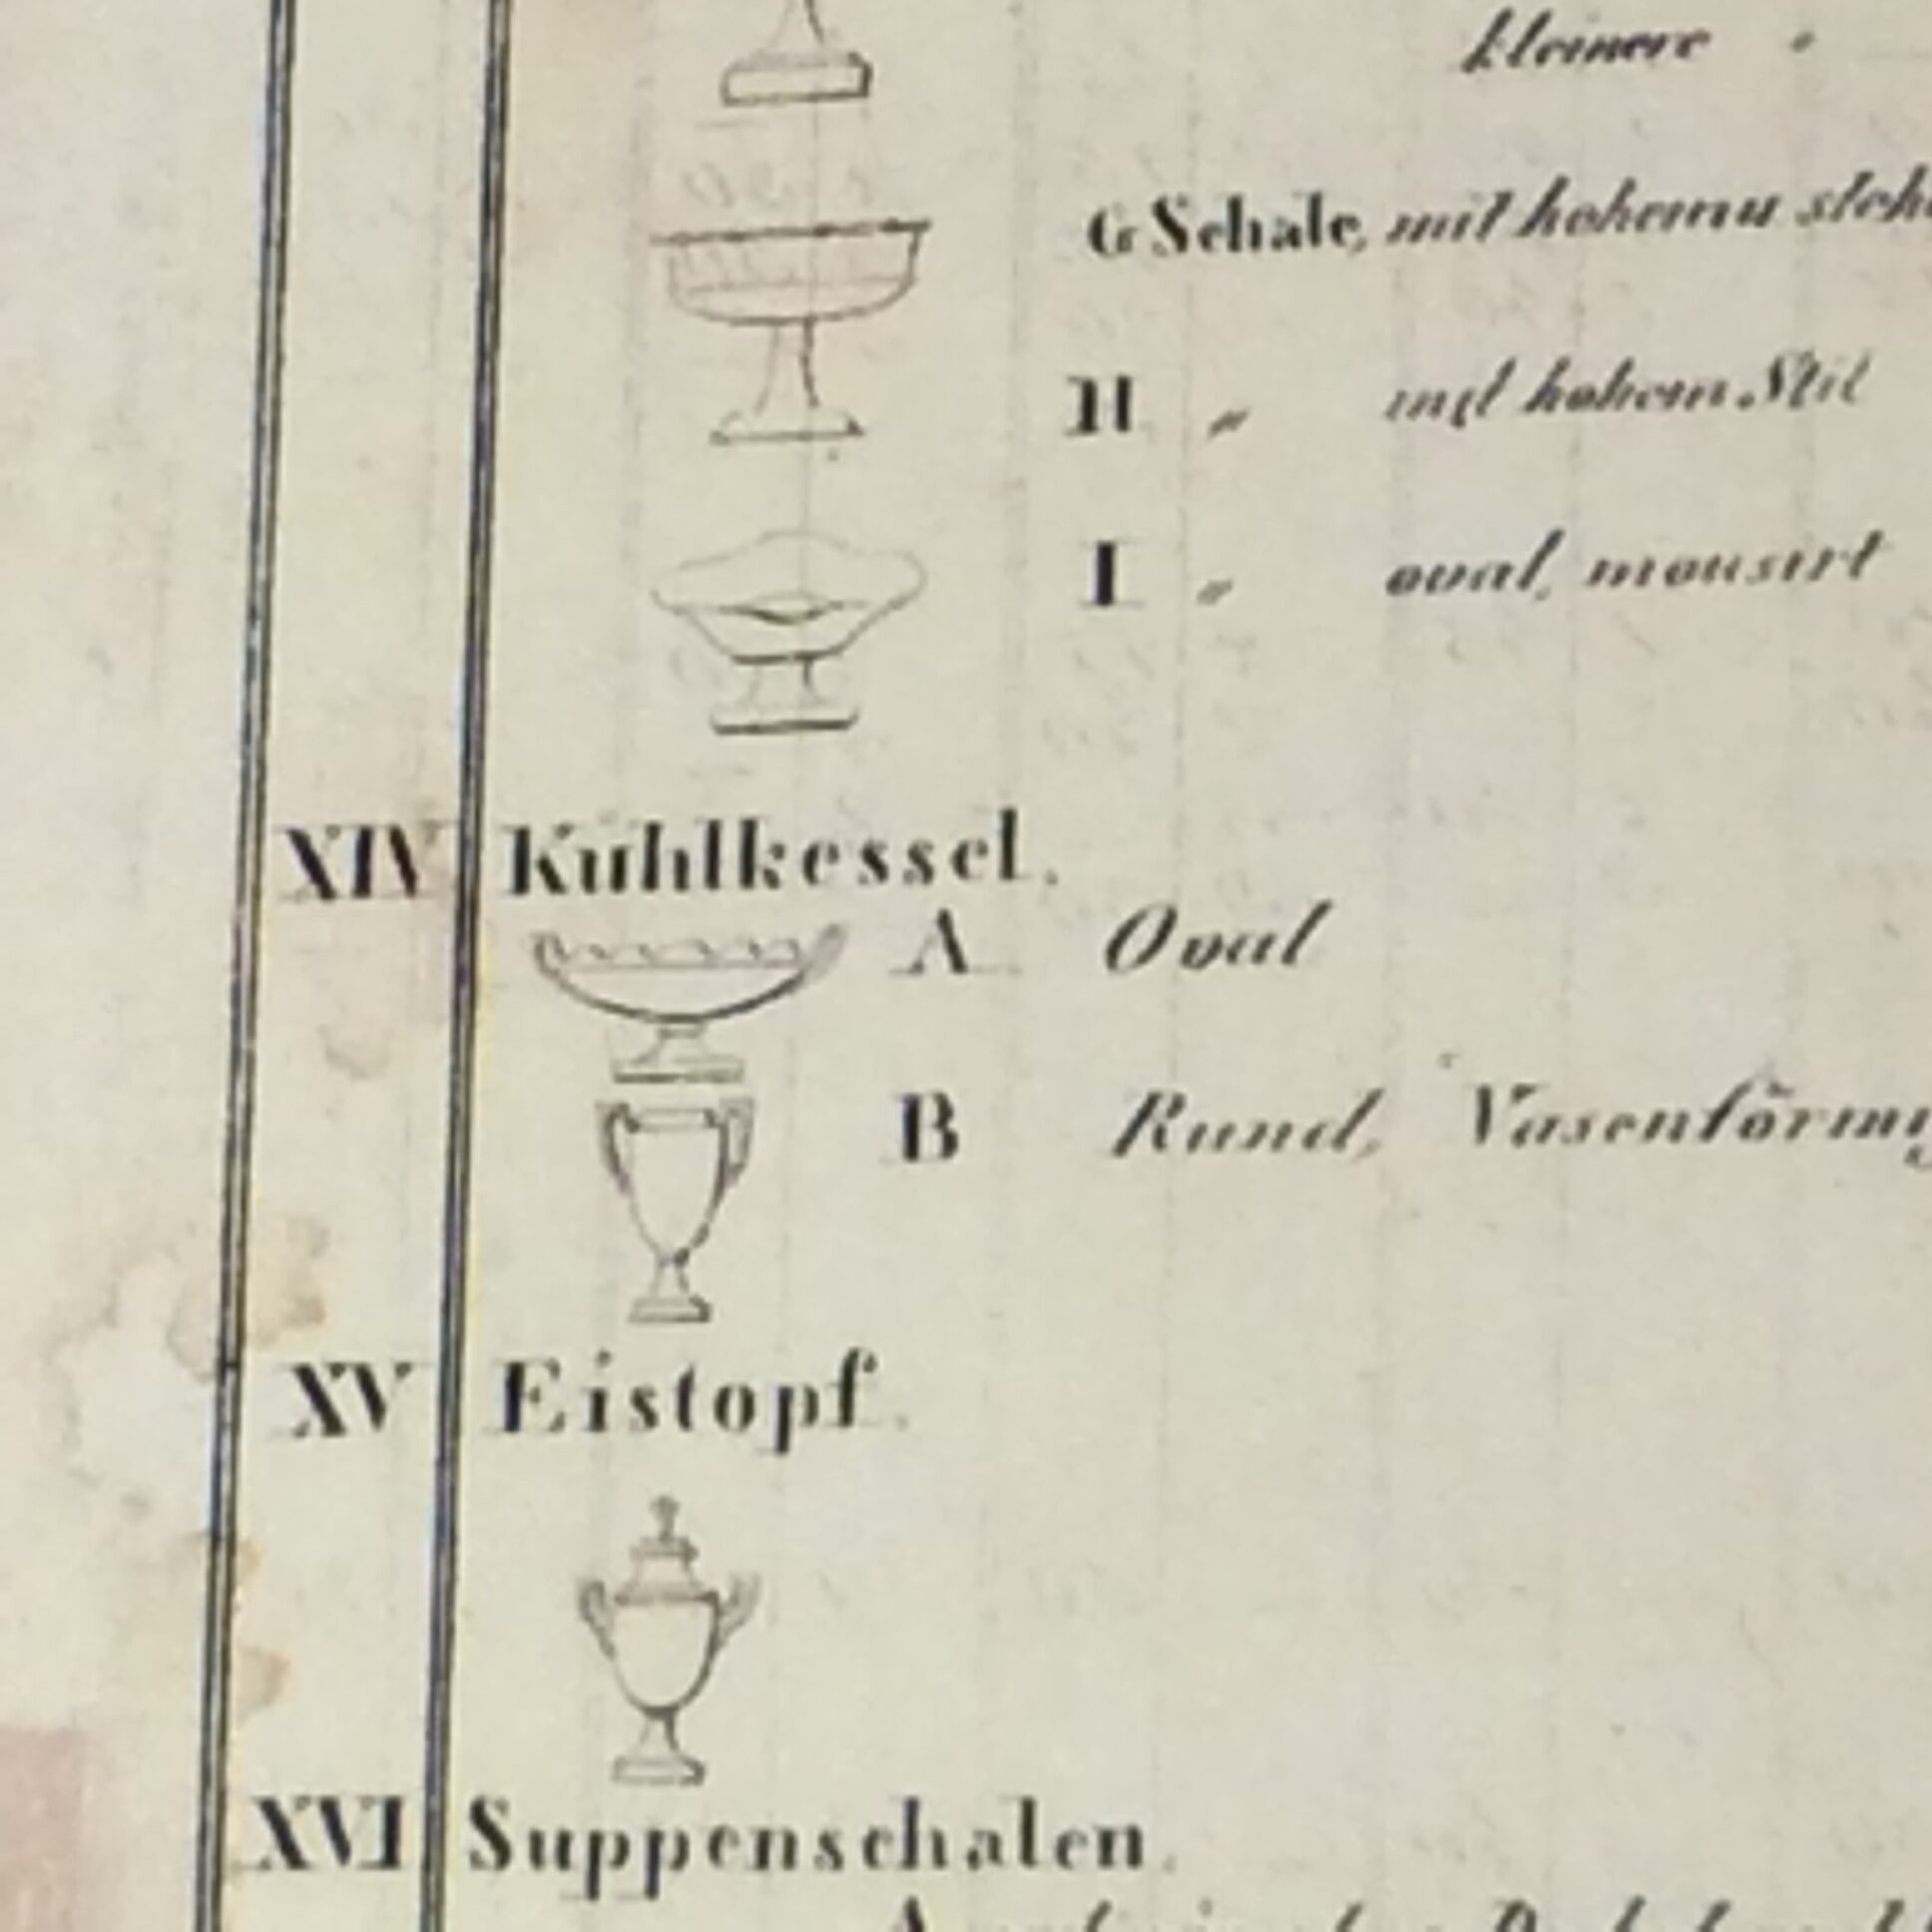 kleinere "
G Schale, mit hohemu
H " mit hohem Stil
I " oval, mousirt
XIV Kühlkessel.
A Oval
B Rund, Vasenförmig
XV Eistopf.
XVI Suppenschalen.